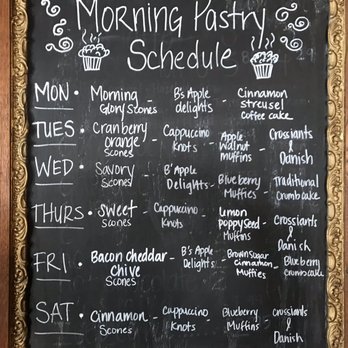 Morning Pastry
Schedule
MON • Morning Glory Scones - B's Apple delights - Cinnamon streusel coffee cake
TUES • Cranberry orange scones - Cappuccino Knots - Apple Walnut muffins - Crossiants & Danish
WED • Savory Scones - B' Apple Delights - Blueberry Muffies - Traditional Crumbcake
THURS • Sweet Scones - Cappuccino Knots - lemon poppyseed Muffins - Crossiants & Danish
FRI • Bacon cheddar chive Scones - B's Apple Delights - Brownsugar cinnamon Muffies - Blueberry crumbcake
SAT • Cinnamon Scones - Cappuccino Knots - Blueberry Muffins - crossiants & Danish